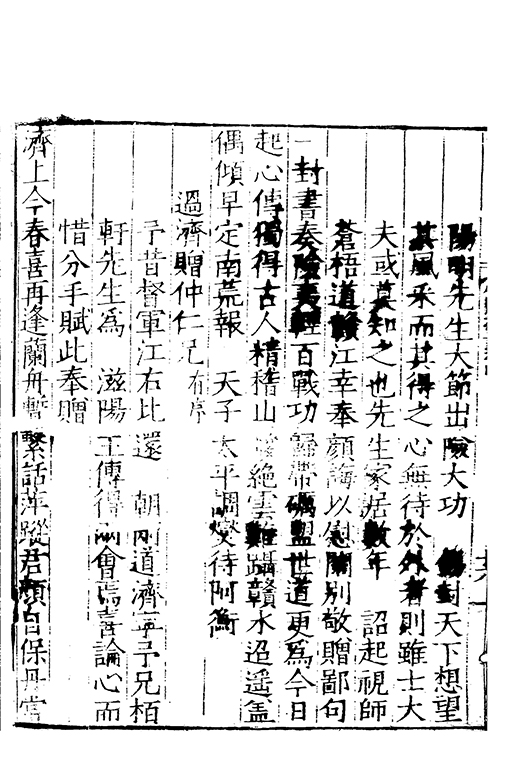 陽明先生大節出險大功　封天下想望
其風采而其得之心無待於外者則雖士大
夫或莫知之也先生家居數年　詔起視師
蒼梧道贛江幸奉顔誨以慰闊別敬贈鄙句
一封書奏險夷輕百戰功歸帶礪盟世道更爲今日
起心傳獨得古人精稽山　絶雲難躡贛水迢遥盖
偶傾早定南荒報　天子太平調燮待阿衡
過濟贈仲仁兄有序
予昔督軍江右比還　朝兩道濟寧予兄栢
軒先生爲　滋陽王傅得兩會焉喜論心而
惜分手賦此奉贈
濟上今春喜再逢蘭舟暫繫話萍蹤君顔自保丹當